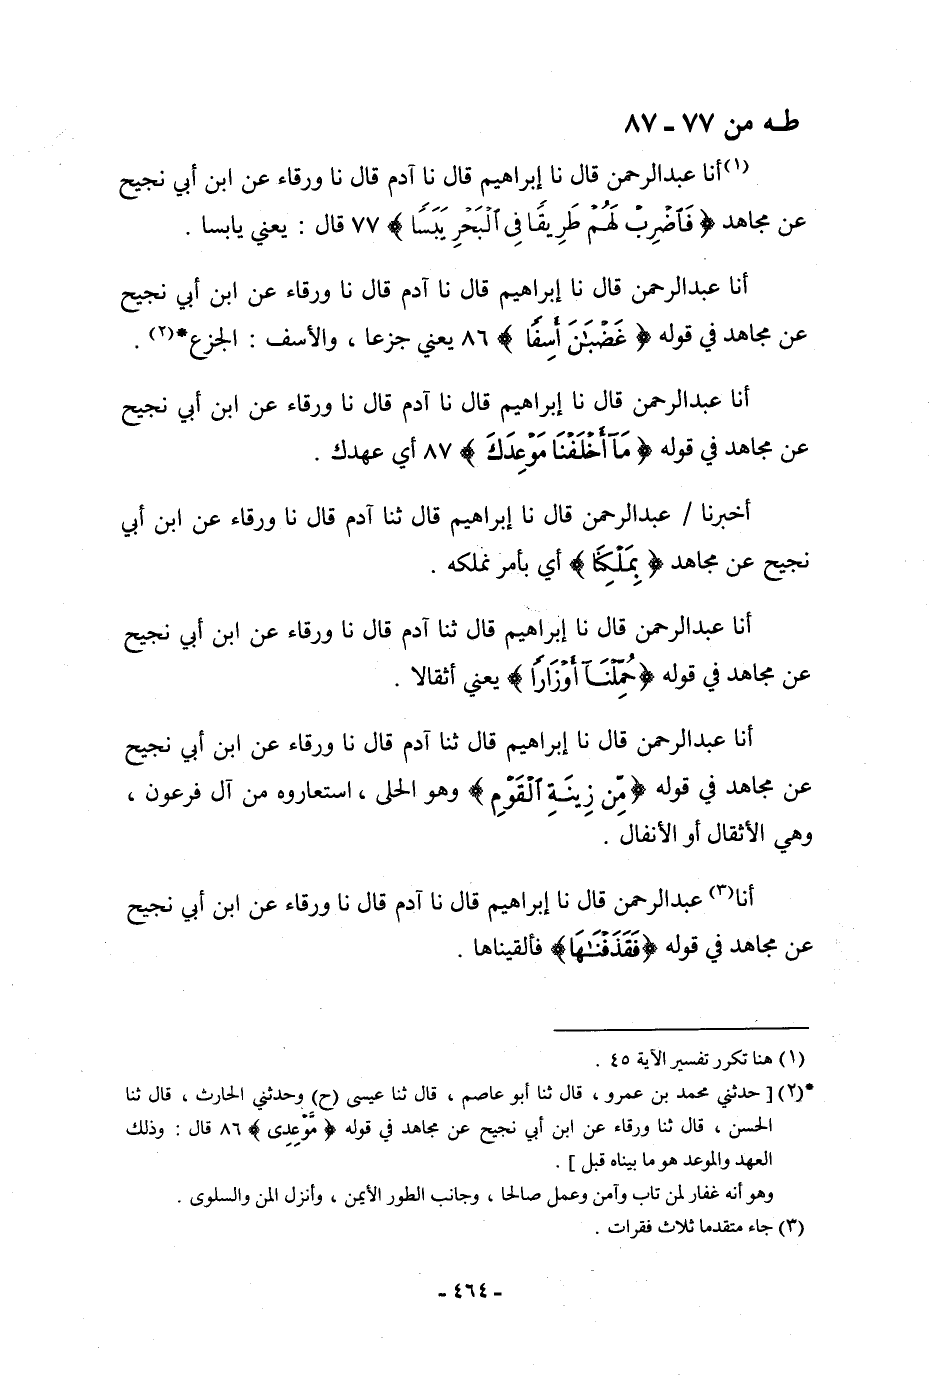 طـه من ٧٧ ـ ٨٧
(١)أنا عبدالرحمن قال نا إبراهيم قال نا آدم قال نا ورقاء عن ابن أبي نجيح
عن مجاهد ﴿ فَٱضْرِبْ لَهُمْ طَرِيقًا فِى ٱلْبَحْرِ يَبَسًا ﴾ ٧٧ قال : يعني يابسا .
أنا عبدالرحمن قال نا إبراهيم قال نا آدم قال نا ورقاء عن ابن أبي نجيح
عن مجاهد في قوله ﴿ غَضْبَـٰنَ أَسِفًا ﴾ ٨٦ يعني جزعا ، والأسف : الجزع*(٢) .
أنا عبدالرحمن قال نا إبراهيم قال نا آدم قال نا ورقاء عن ابن أبي نجيح
عن مجاهد في قوله ﴿ مَآ أَخْلَفْنَا مَوْعِدَكَ ﴾ ٨٧ أي عهدك .
أخبرنا / عبدالرحمن قال نا إبراهيم قال ثنا آدم قال نا ورقاء عن ابن أبي
نجيح عن مجاهد ﴿ بِمَلْكِنَا ﴾ أي بأمر نملكه .
أنا عبدالرحمن قال نا إبراهيم قال ثنا آدم قال نا ورقاء عن ابن أبي نجيح
عن مجاهد في قوله ﴿حُمِّلْنَـآ أَوْزَارًا ﴾ يعني أثقالا .
أنا عبدالرحمن قال نا إبراهيم قال ثنا آدم قال نا ورقاء عن ابن أبي نجيح
عن مجاهد في قوله ﴿مِّن زِينَـةِ ٱلْقَوْمِ ﴾ وهو الحلى ، استعاروه من آل فرعون ،
وهي الأثقال أو الأنفال .
أنا(٣) عبدالرحمن قال نا إبراهيم قال نا آدم قال نا ورقاء عن ابن أبي نجيح
عن مجاهد في قوله ﴿فَقَذَفْنَـٰهَا﴾ فألقيناها .
(١) هنا تكرر تفسير الآية ٤٥ .
*(٢) [ حدثني محمد بن عمرو ، قال ثنا أبو عاصم ، قال ثنا عيسى (ح) وحدثني الحارث ، قال ثنا
الحسن ، قال ثنا ورقاء عن ابن أبي نجيح عن مجاهد في قوله ﴿ مَّوْعِدِى ﴾ ٨٦ قال : وذلك
العهد والموعد هو ما بيناه قبل ] .
وهو أنه غفار لمن تاب وآمن وعمل صالحا ، وجانب الطور الأيمن ، وأنزل المن والسلوى .
(٣) جاء متقدما ثلاث فقرات .
ـ ٤٦٤ ـ